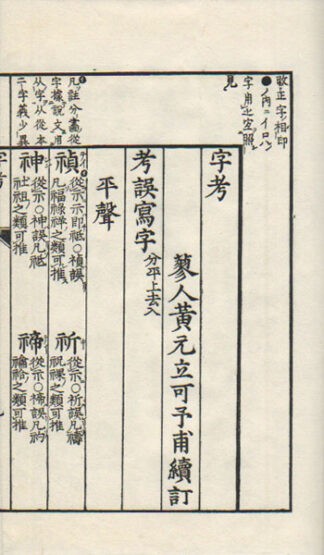 改正字ノ相印
●ノ内ニイロハノ
字用ヒ空照
見
凡註分畫從
字據說文用
从字从從本
二字義少異
字考
蓼人黃元立可予甫續訂
考誤寫字 分平上去入
平聲
禎 從示示即祗○禎誤
凡福祿祥之類可推
祈 從示○祈誤凡禱
祝祼之類可推
神 從示○神誤凡祇
社祖之類可推
禘 從示○禘誤凡礿
禬祫之類可推
字考